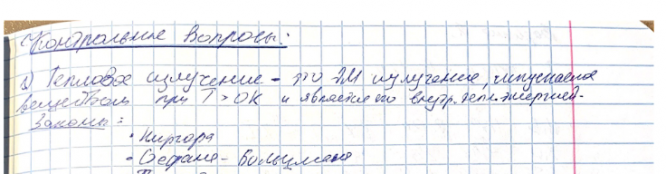 Контрольные вопросы:
1) Тепловое излучение - это ЭМ излучение, испускаемое
веществом при T>0K и является его внутр. тепл. энергией.
Законы:
• Кирхгофа
• Стефана - Больцмана